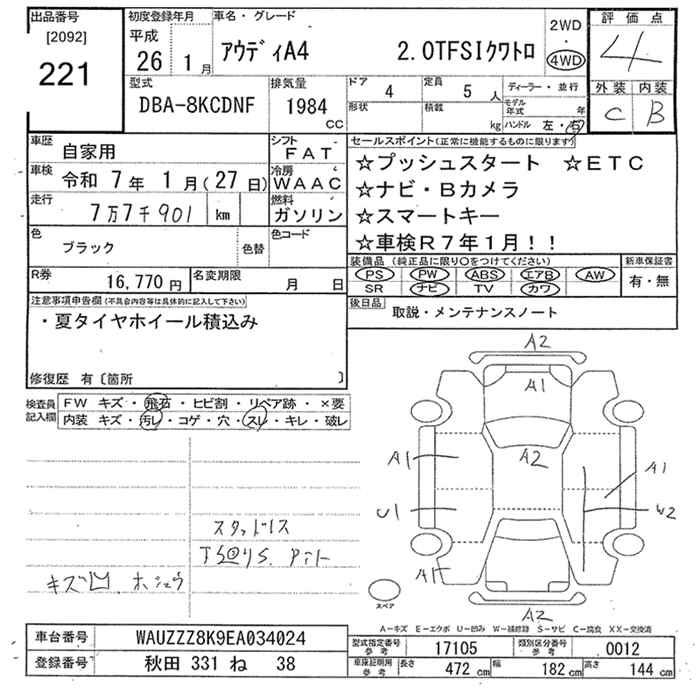 出品番号
[2092]
221
初度登録年月
平成
26 1月
車名・グレード
アウディA4 2.0TFSIクワトロ
2WD
・
4WD
評価点
4
外装 内装
C B
型式
DBA-8KCDNF
排気量
1984
CC
ドア
4
定員
5人
形状
積載
kg
ディーラー・並行
モデル年式 年
ハンドル 左・右
車歴
自家用
シフト
FAT
車検
令和 7年 1月(27日)
冷房
WAAC
走行
7万7千901 km
燃料
ガソリン
色
ブラック
色替
色コード
R券
16,770円
名変期限
月 日
セールスポイント(正常に機能するものに限ります)
☆プッシュスタート ☆ETC
☆ナビ・Bカメラ
☆スマートキー
☆車検R7年1月!!
装備品(純正品に限り○をつけてください)
PS PW ABS エアB AW
SR ナビ TV カワ
新車保証書
有・無
後日品
取説・メンテナンスノート
注意事項申告欄(不具合内容等は具体的に記入して下さい)
・夏タイヤホイール積込み
修復歴 有〔箇所 〕
検査員
記入欄
FW キズ・飛石・ヒビ割・リペア跡・×要
内装 キズ・汚レ・コゲ・穴・スレ・キレ・破レ
スタッドレス
キズ凹 ホシュウ
A2
A1
A2
A1
A1
U1
W2
A1
A2
スペア
A-キズ E-エクボ U-凹み W-補修跡 S-サビ C-腐食 XX-交換済
車台番号
WAUZZZ8K9EA034024
登録番号
秋田 331 ね 38
型式指定番号
参考
17105
類別区分番号
参考
0012
車庫証明用
参考
長さ
472cm
幅
182cm
高さ
144cm